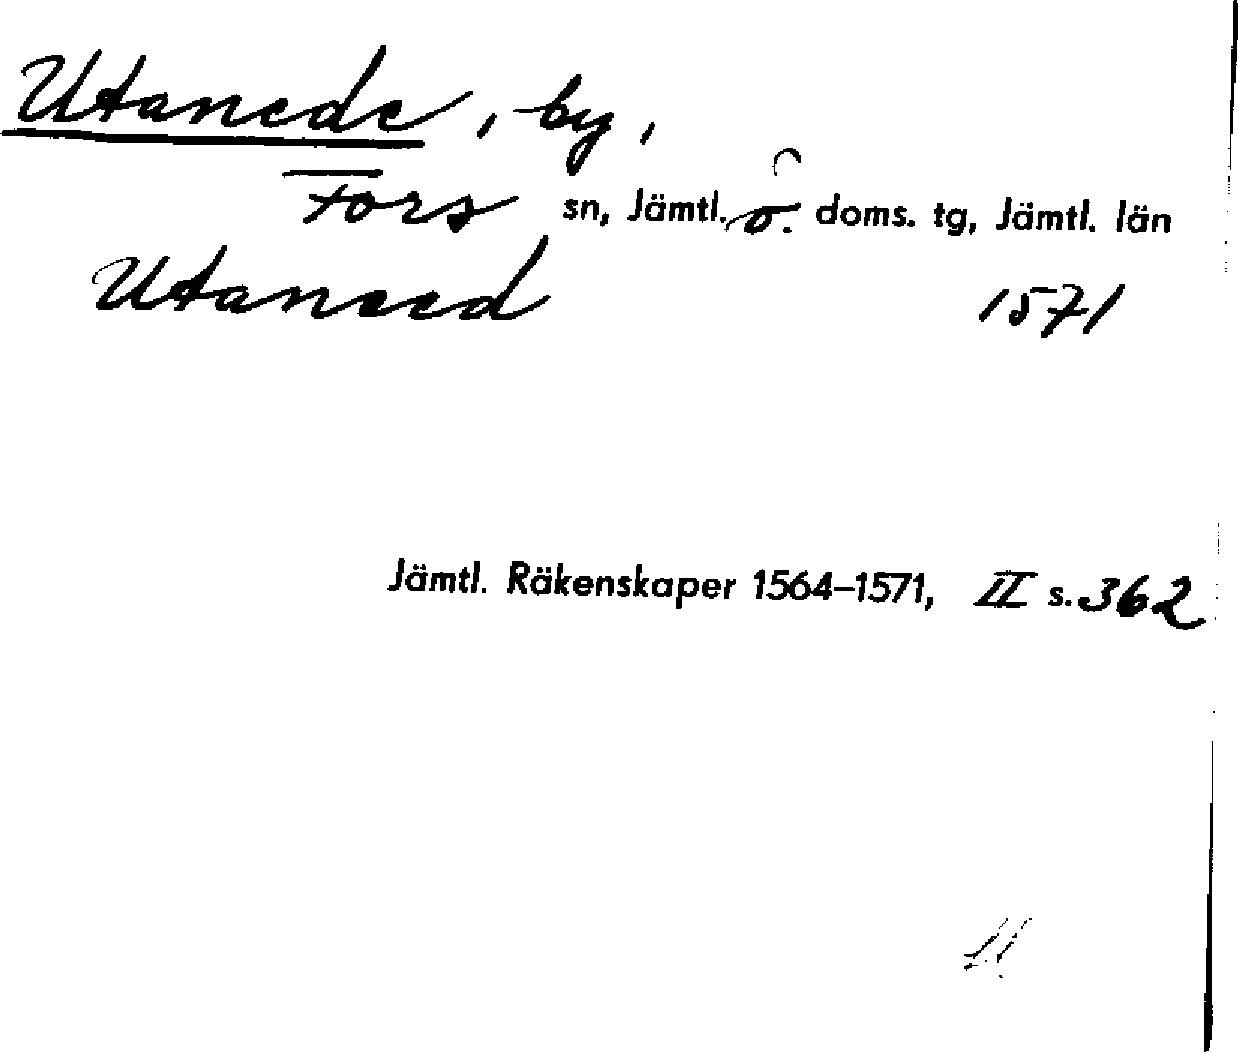 Utanede, by,
Fors sn, Jämtl. ö. doms. tg, Jämtl. län
Utaneed 1571
Jämtl. Räkenskaper 1564–1571, II s. 362